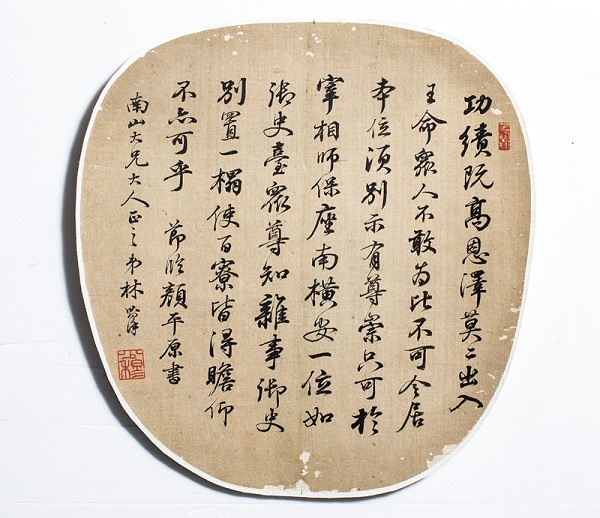 功績既高恩澤莫二出入
王命眾人不敢為比不可令居
本位須別示有尊崇只可於
宰相師保座南橫安一位如
御史臺眾尊知雜事御史
別置一榻使百寮皆得瞻仰
不亦可乎 節臨顏平原書
南山大兄大人正之弟林